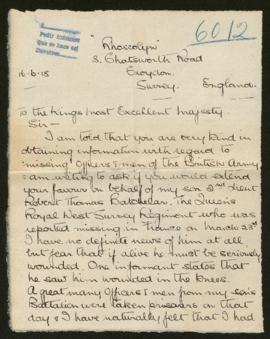 "Rhoscolyn"
6012
3. Chatsworth Road
16.6.18
Croydon.
Surrey. England.
To the Kings most Excellent Majesty.
Sir—
I am told that you are very kind in
obtaining information with regard to
"missing" Officers & men of the British Army.
I am writing to ask if you would extend
your favour on behalf of my son 2nd Lieut
Robert Thomas Batchelar. The Queens
Royal West Surrey Regiment who was
reported missing in France on March 23rd
I have no definite news of him at all,
but fear that if alive he must be seriously
wounded. One informant states that
he saw him wounded in the knee.
A great many Officers & men from my son's
Battalion were taken prisoners on that
day & I have naturally felt that I had